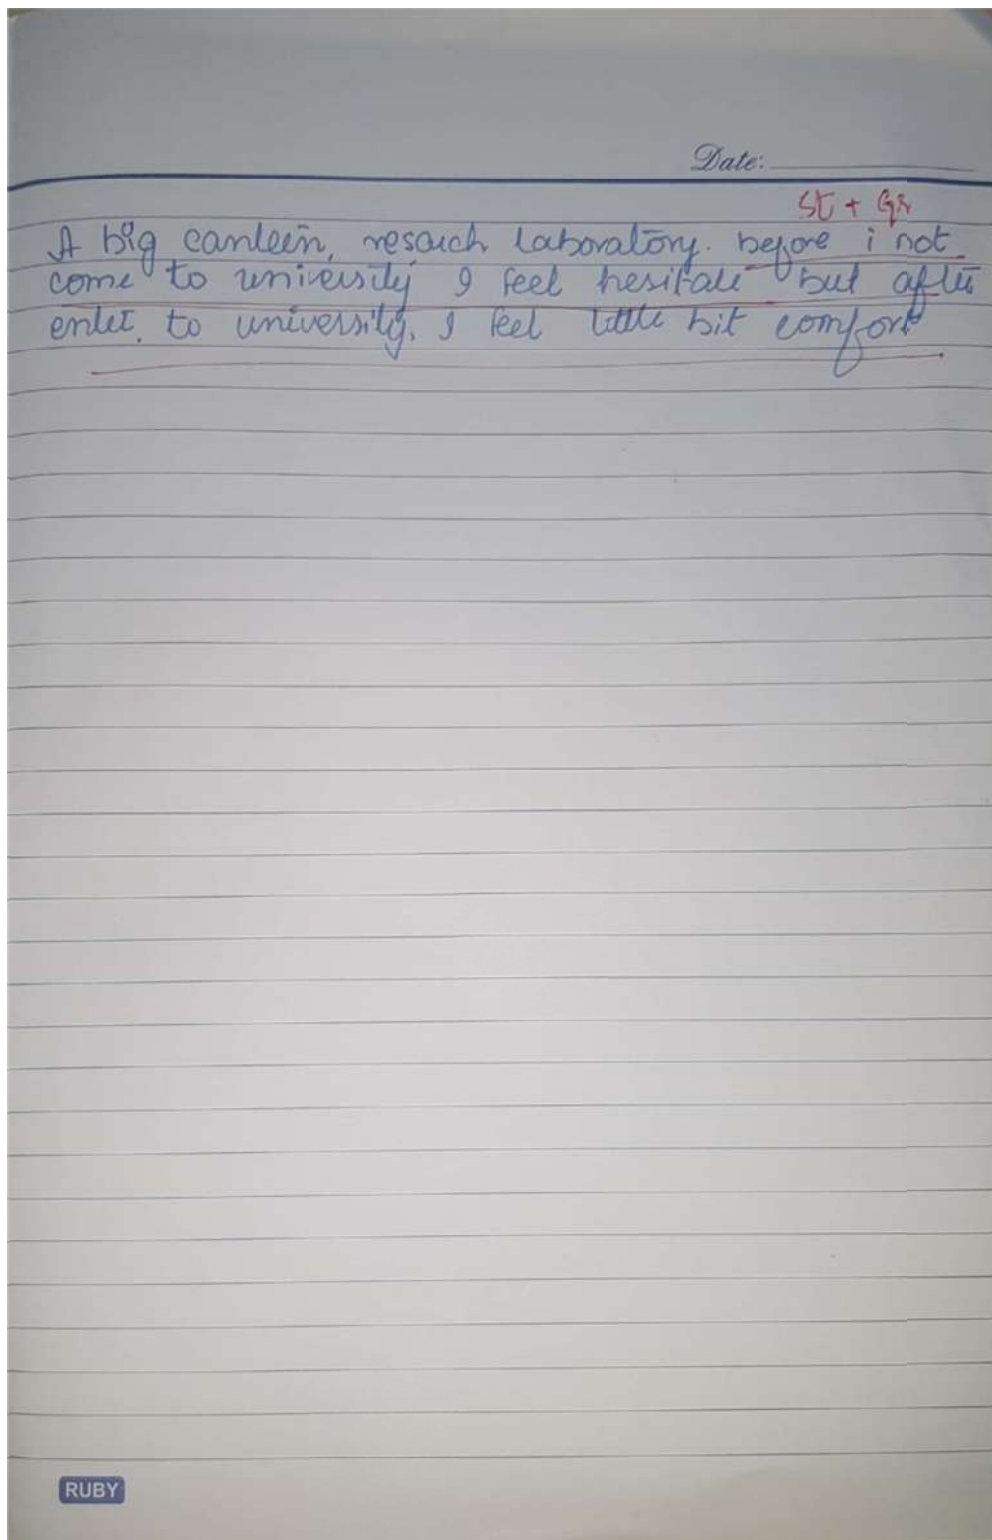 Date:
St + Gr
A big canteen, resarch laboratory. before i not
come to university I feel hesitate but after
enter to university. I feel little bit comfort
RUBY